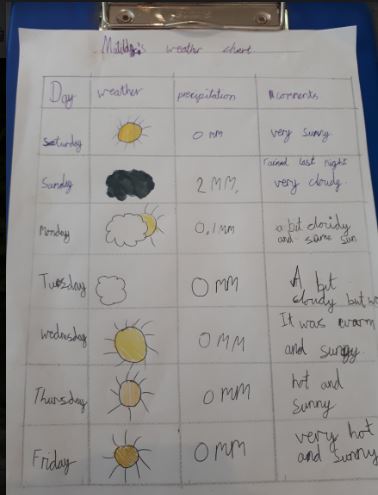 Maddy's weather chart
Day weather precipitation comments
Saturday 0 MM very sunny
rained last night
Sanday 2 MM. very cloudy.
Monday 0.1MM a bit cloudy
and some sun
Tuesday 0 MM A bit
cloudy but
Wednesday 0 MM It was warm
and sunny
Thursday 0 MM hot and
Sunny
Friday 0 MM very hot
and sunny